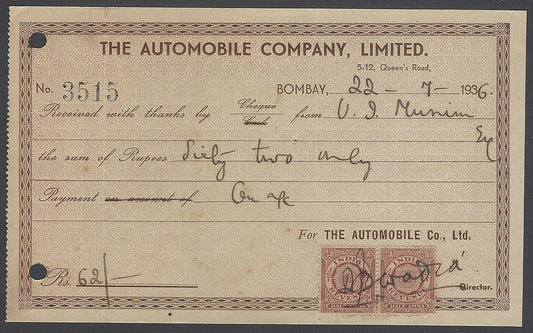 THE AUTOMOBILE COMPANY, LIMITED.
5-12, Queen's Road,
No. 3515 BOMBAY, 22 - 7 - 1936.
Received with thanks by Cheque Cash from V. J. Munim Esq
the sum of Rupees Sixty two only
Payment on account of On a/c
For THE AUTOMOBILE Co., Ltd.
INDIA INDIA
REVENUE REVENUE
HALF ANNA HALF ANNA
Rs. 62/- Director.